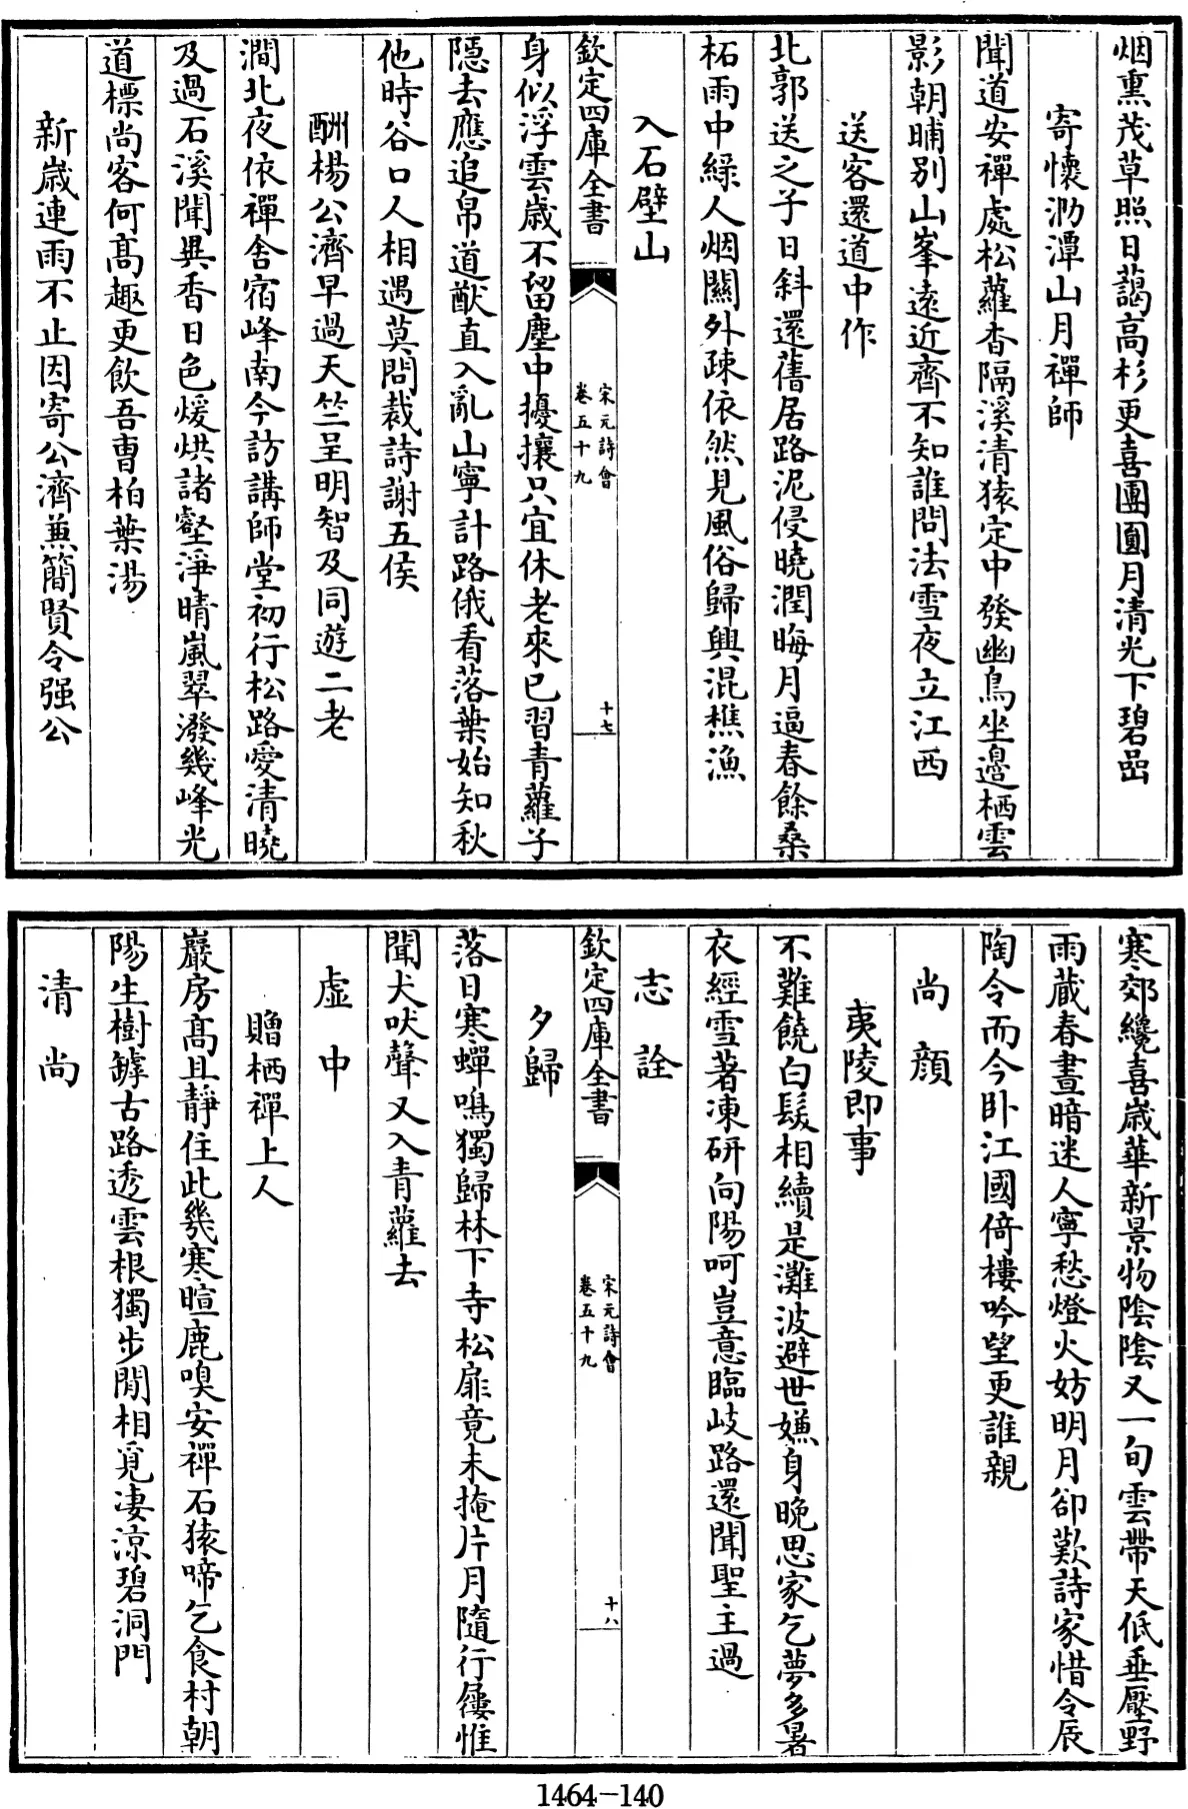 烟熏茂草照日藹高杉更喜團圓月清光下碧嵒
寄懷泐潭山月禪師
聞道安禪處松蘿杳隔溪清猿定中發幽鳥坐邉栖雲
影朝晡别山峯遠近齊不知誰問法雪夜立江西
送客還道中作
北郭送之子日斜還舊居路泥侵曉潤晦月逼春餘桑
柘雨中緑人烟關外疎依然見風俗歸興混樵漁
入石壁山
欽定四庫全書
宋元詩會
卷五十九
十七
身似浮雲歲不留塵中擾攘只宜休老來已習青蘿子
隱去應追帛道猷直入亂山寧計路俄看落葉始知秋
他時谷口人相遇莫問裁詩謝五侯
酬楊公濟早過天竺呈明智及同遊二老
澗北夜依禪舍宿峰南今訪講師堂初行松路愛清曉
及過石溪聞異香日色煖烘諸壑淨晴嵐翠潑幾峰光
道標尚客何髙趣更飲吾曹柏葉湯
新歲連雨不止因寄公濟蕪簡賢令强公
寒郊纔喜歲華新景物陰陰又一旬雲帶天低垂壓野
雨藏春晝暗迷人寧愁燈火妨明月卻歎詩家惜令辰
陶令而今卧江國倚樓吟望更誰親
尚顔
夷陵即事
不難饒白髮相續是灘波避世嫌身晚思家乞夢多暑
衣經雪著凍研向陽呵豈意臨岐路還聞聖主過
志詮
欽定四庫全書
宋元詩會
卷五十九
十八
夕歸
落日寒蟬鳴獨歸林下寺松扉竟未掩片月隨行屨惟
聞犬吠聲又入青蘿去
虚中
贈栖禪上人
巖房髙且靜住此幾寒暄鹿嗅安禪石猿啼乞食村朝
陽生樹罅古路透雲根獨步閒相覓凄涼碧洞門
清尚
1464-140